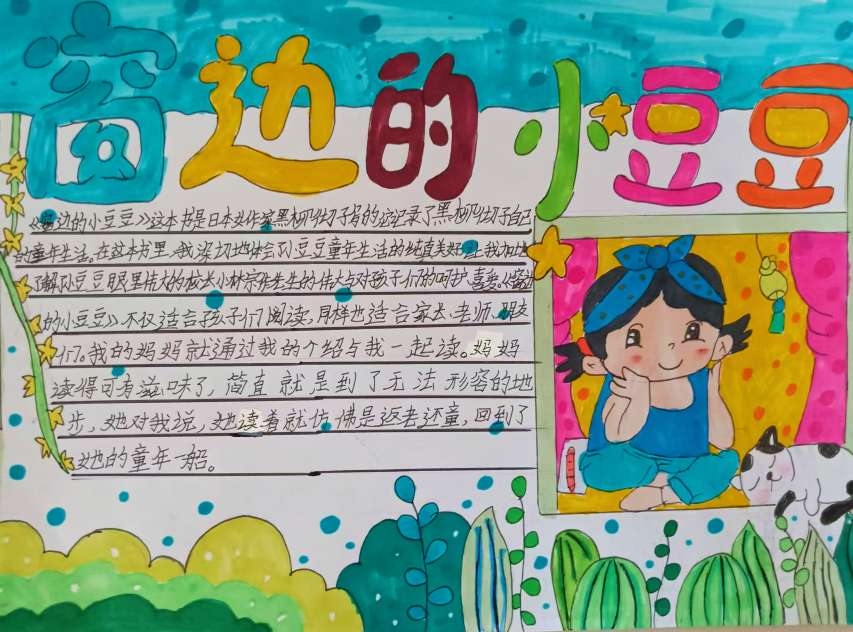 窗边的小豆豆
《窗边的小豆豆》这本书是日本女作家黑柳彻子写的这记录了黑柳彻子自己
的童年生活。在这本书里,我深切地体会到小豆豆童年生活的纯真美好,让我加地
了解到小豆豆眼里伟大的校长小林宗作先生的伟大与对孩子们的呵护、喜爱。《窗边
的小豆豆》不仅适合孩子们阅读,同样也适合家长、老师、朋友
们。我的妈妈就通过我的介绍与我一起读。妈妈
读得可有滋味了,简直就是到了无法形容的地
步,她对我说,她读着就仿佛是返老还童,回到了
她的童年一般。